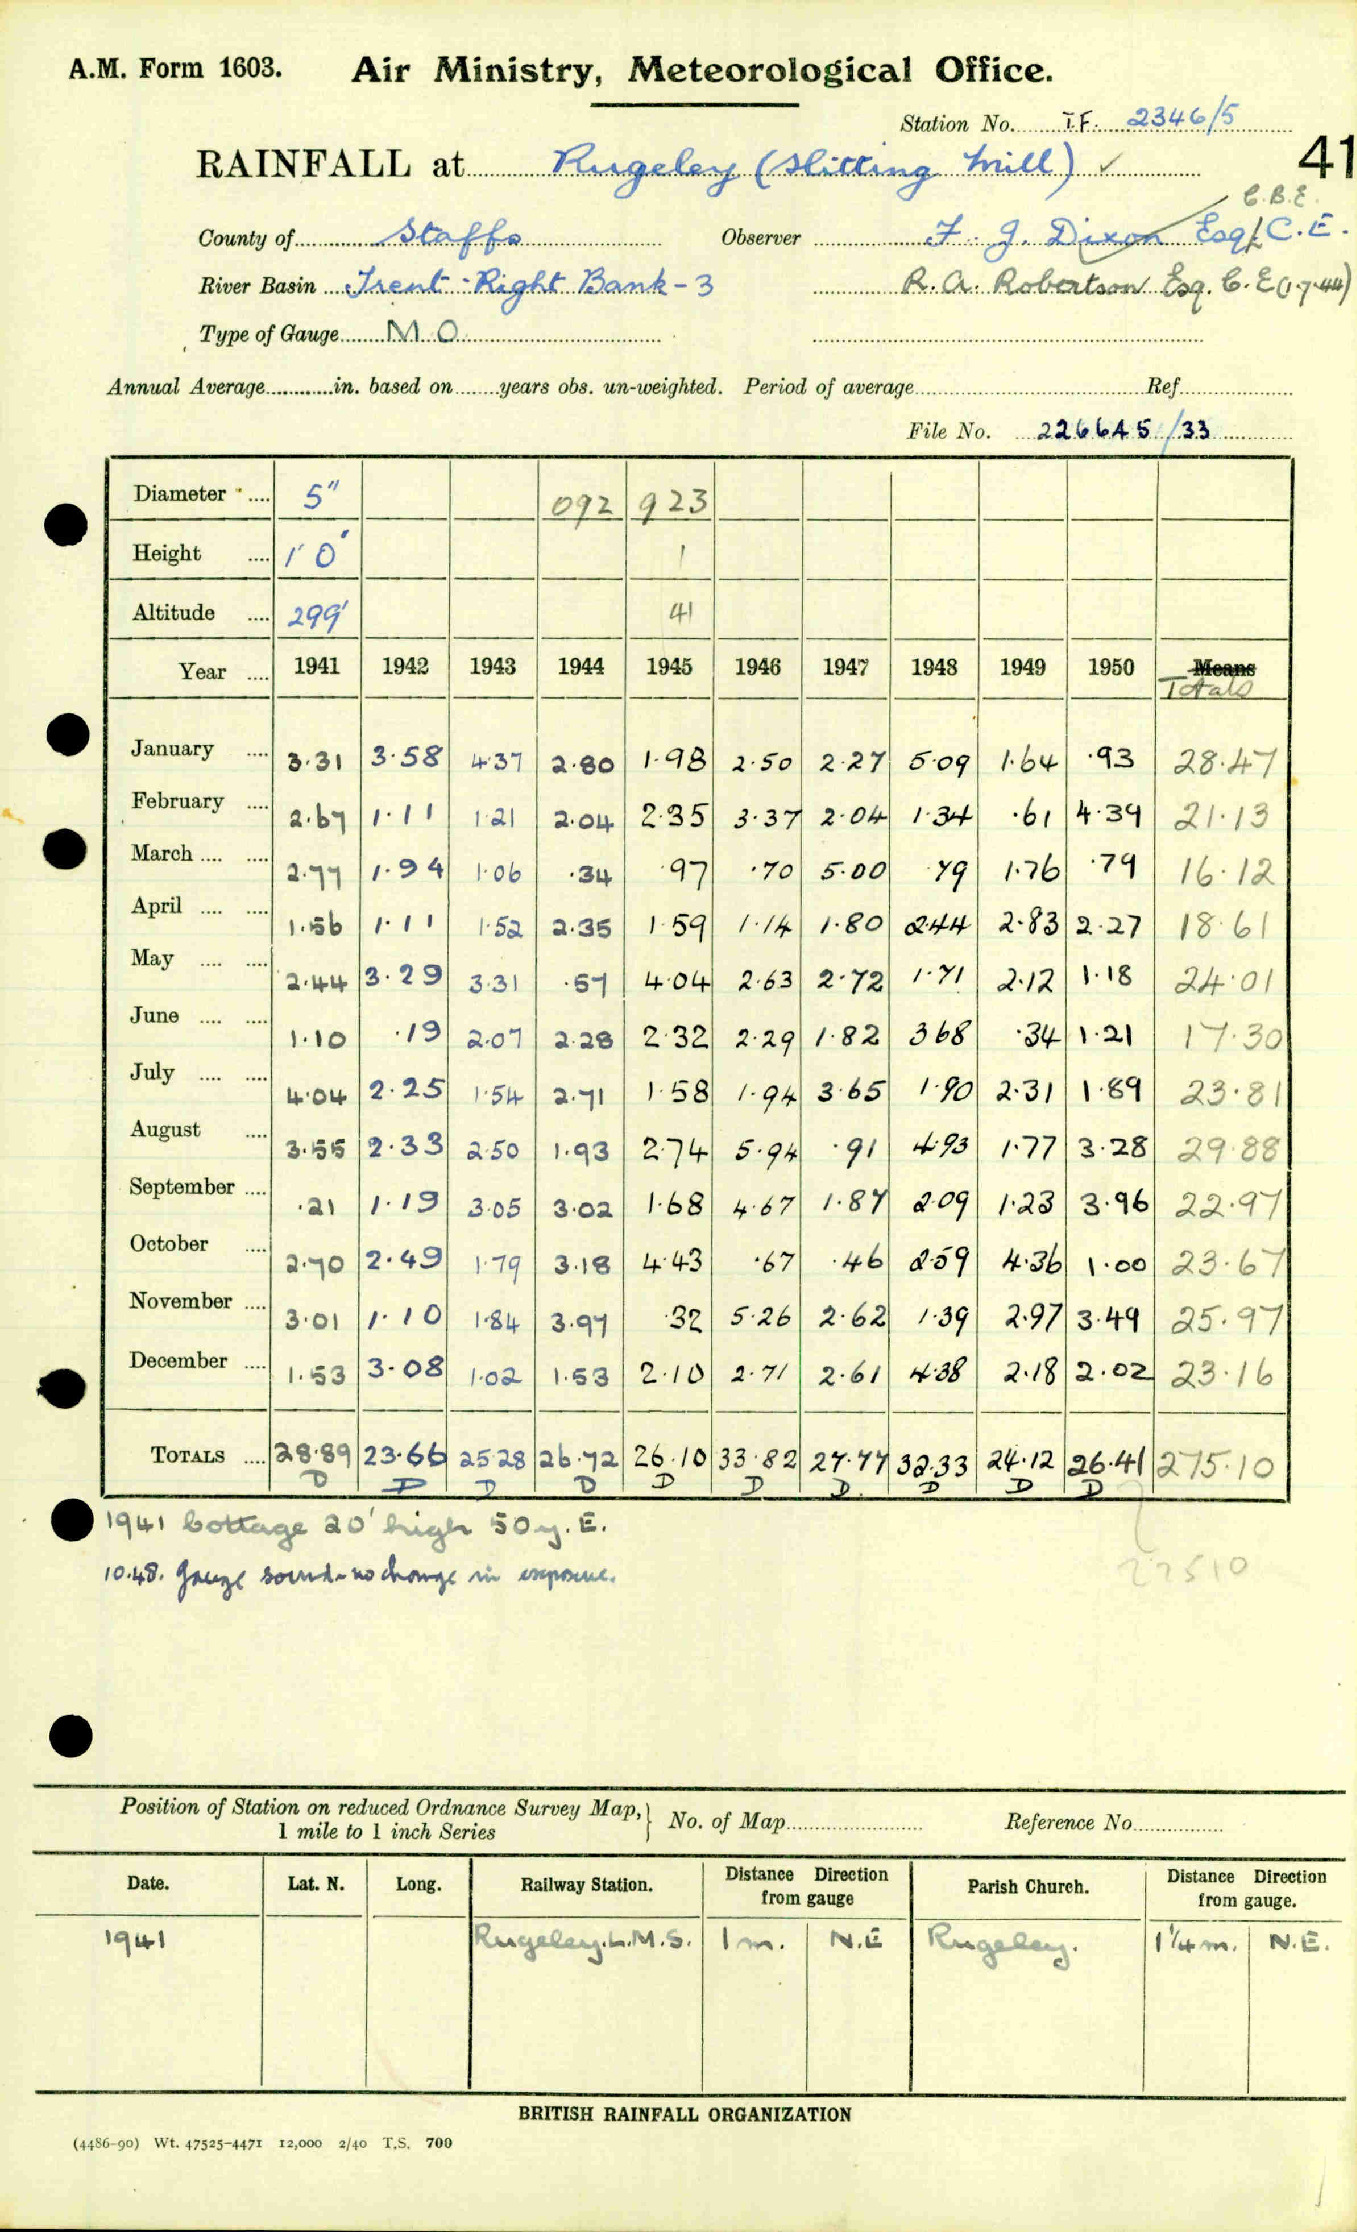 A.M. Form 1603. Air Ministry, Meteorological Office.
Station No. I.F. 2346/5
RAINFALL at Rugeley (Slitting Mill) ✓ 41
C.B.E.
County of Staffs Observer F. J. Dixon Esq C.E.
River Basin Trent - Right Bank - 3 R.A. Robertson Esq. C.E (1.7.44)
Type of Gauge M O
Annual Average in. based on years obs. un-weighted. Period of average Ref
File No. 226645/33
Diameter 5" 092 923
Height 1' 0" 1
Altitude 299' 41
Year 1941 1942 1943 1944 1945 1946 1947 1948 1949 1950 Means Totals
January 3.31 3.58 4.37 2.80 1.98 2.50 2.27 5.09 1.64 .93 28.47
February 2.67 1.11 1.21 2.04 2.35 3.37 2.04 1.34 .61 4.39 21.13
March 2.77 1.94 1.06 .34 .97 .70 5.00 .79 1.76 .79 16.12
April 1.56 1.11 1.52 2.35 1.59 1.14 1.80 2.44 2.83 2.27 18.61
May 2.44 3.29 3.31 .57 4.04 2.63 2.72 1.71 2.12 1.18 24.01
June 1.10 .19 2.07 2.28 2.32 2.29 1.82 3.68 .34 1.21 17.30
July 4.04 2.25 1.54 2.71 1.58 1.94 3.65 1.90 2.31 1.89 23.81
August 3.55 2.33 2.50 1.93 2.74 5.94 .91 4.93 1.77 3.28 29.88
September .21 1.19 3.05 3.02 1.68 4.67 1.87 2.09 1.23 3.96 22.97
October 2.70 2.49 1.79 3.18 4.43 .67 .46 2.59 4.36 1.00 23.67
November 3.01 1.10 1.84 3.97 .32 5.26 2.62 1.39 2.97 3.49 25.97
December 1.53 3.08 1.02 1.53 2.10 2.71 2.61 4.38 2.18 2.02 23.16
TOTALS 28.89 23.66 25.28 26.72 26.10 33.82 27.77 32.33 24.12 26.41 275.10
D D D D D D D D D D
1941 Cottage 20' high 50y. E.
10.48. Gauge sound - no change in exposure.
22510
Position of Station on reduced Ordnance Survey Map, 1 mile to 1 inch Series } No. of Map Reference No
Date. Lat. N. Long. Railway Station. Distance Direction from gauge Parish Church. Distance Direction from gauge.
1941 Rugeley. L.M.S. 1 m. N.E Rugeley. 1¼ m. N.E.
BRITISH RAINFALL ORGANIZATION
(4486-90) Wt. 47525-4471 12,000 2/40 T.S. 700